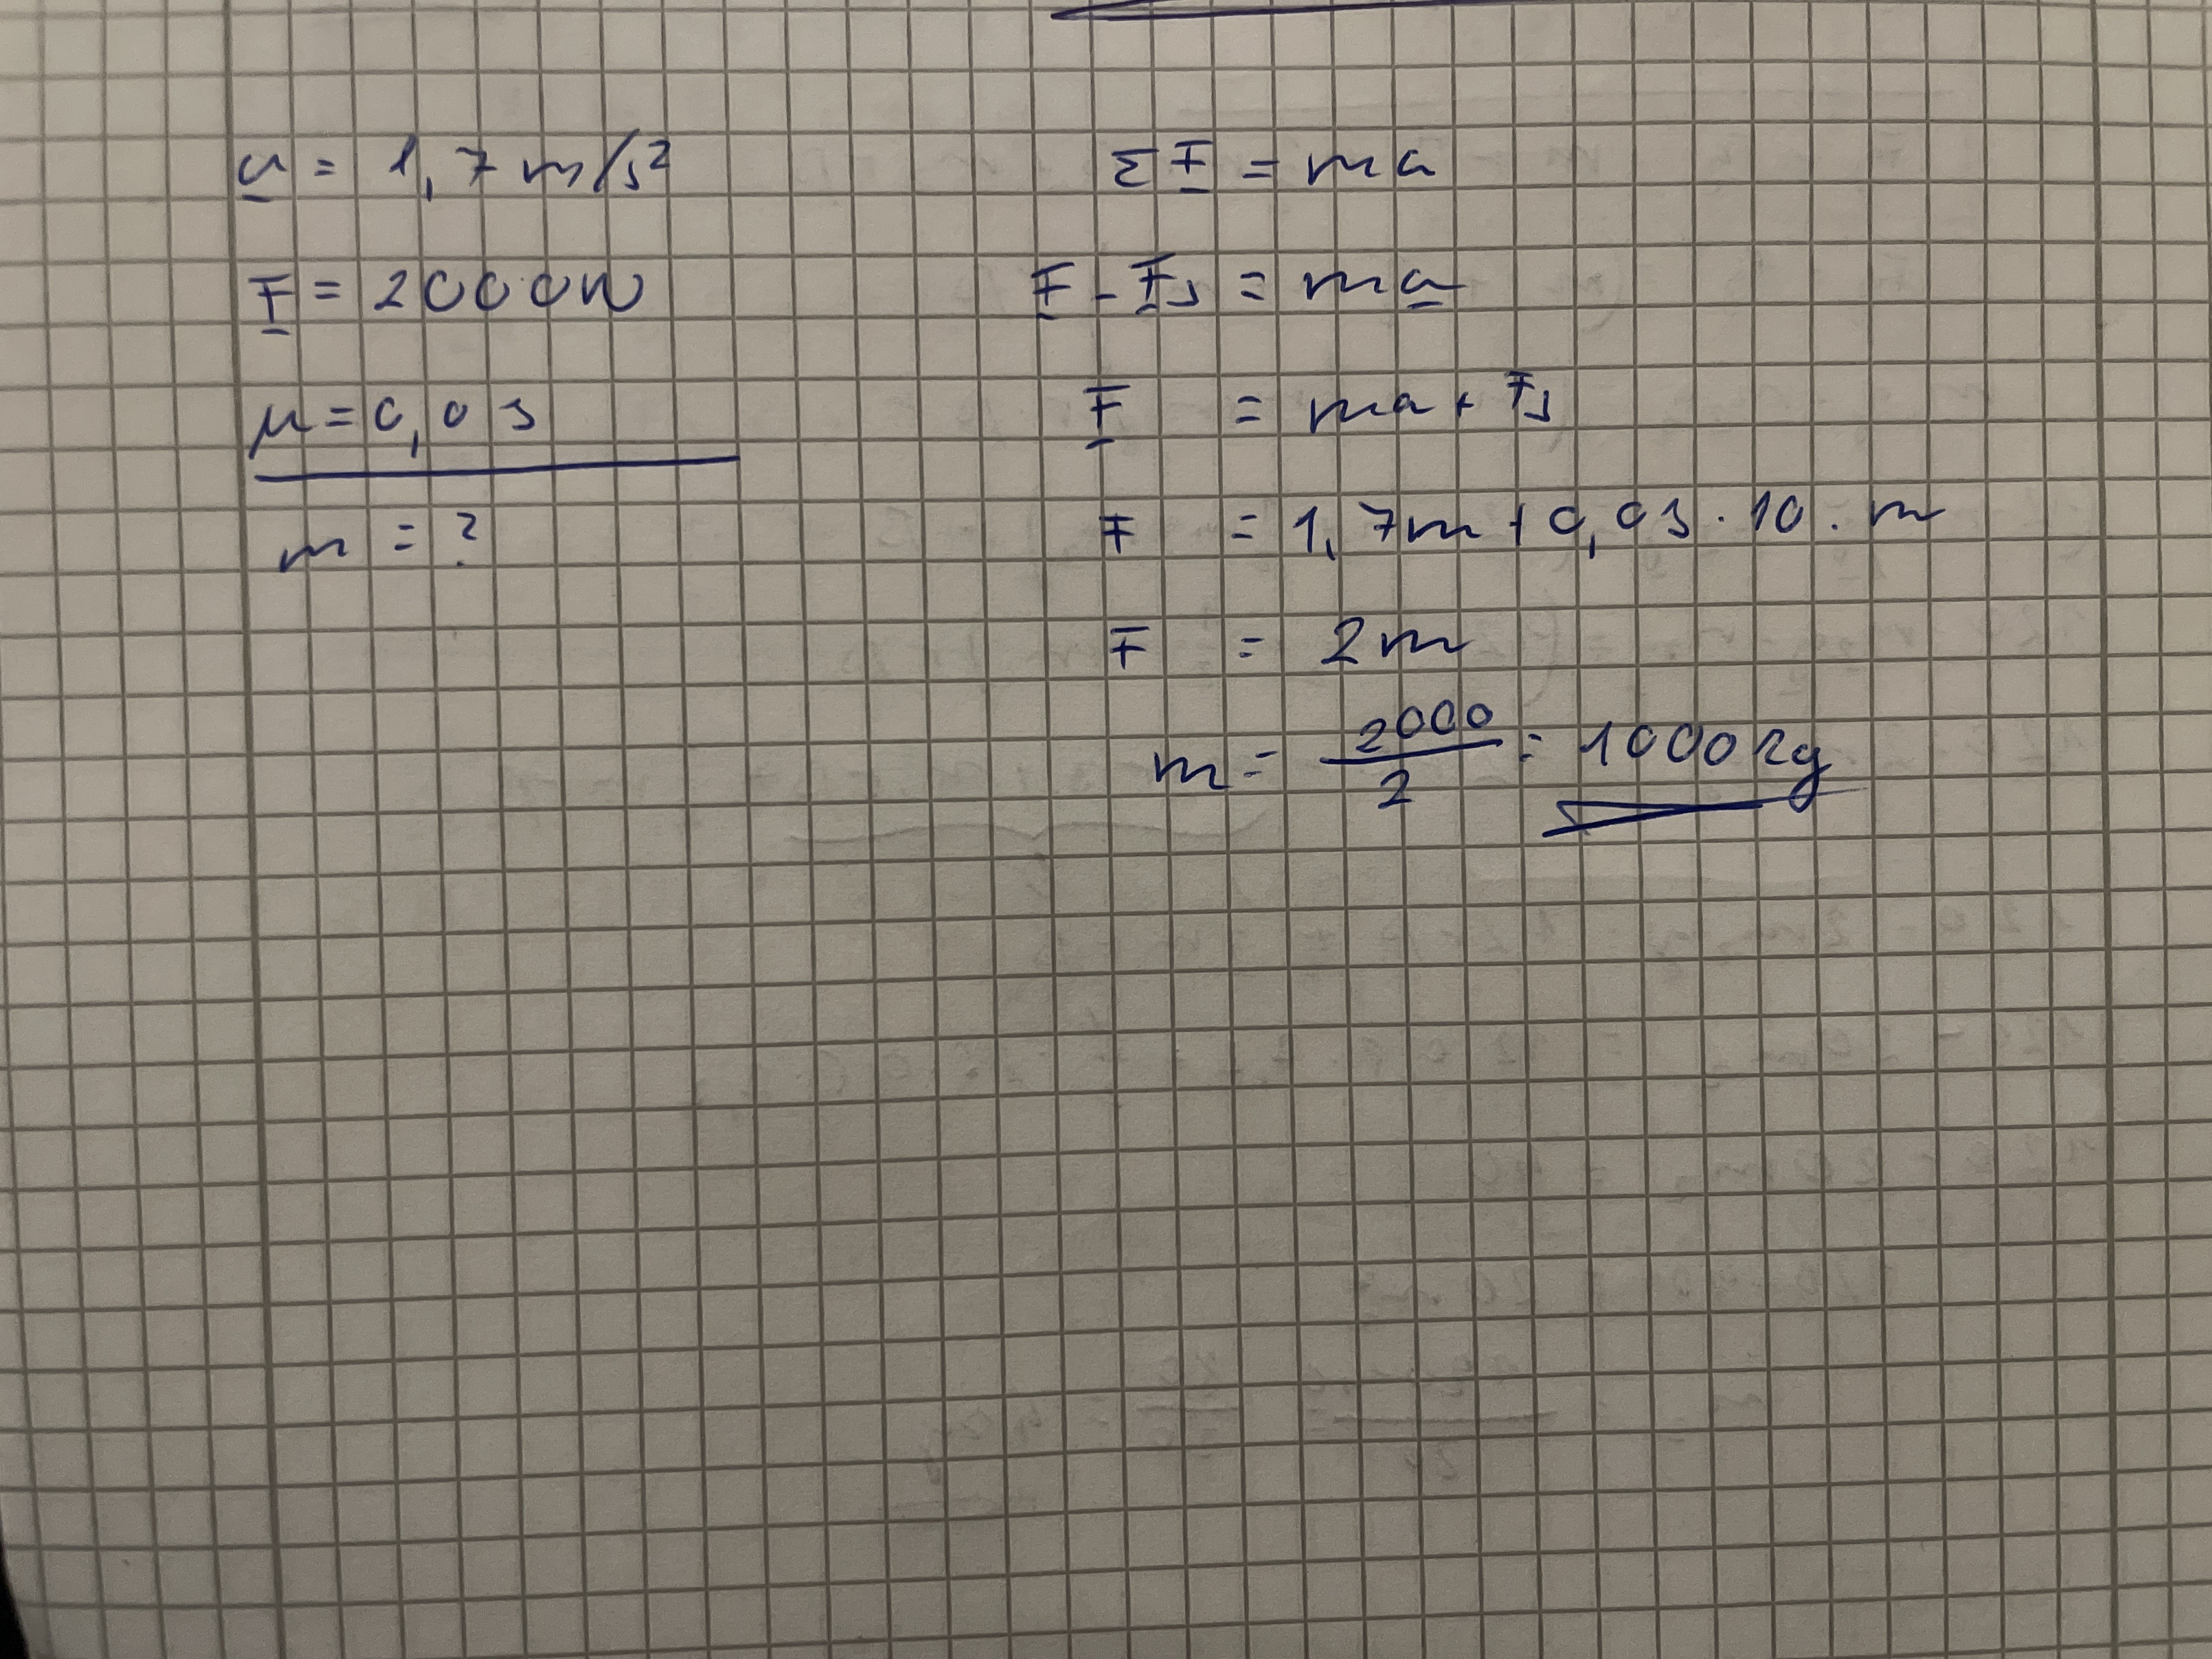 a = 1,7 m/s²
F = 2000N
μ = 0,03
m = ?
ΣF = ma
F - Fs = ma
F = ma + Fs
F = 1,7m + 0,03 · 10 · m
F = 2m
m = 2000/2 = 1000 kg